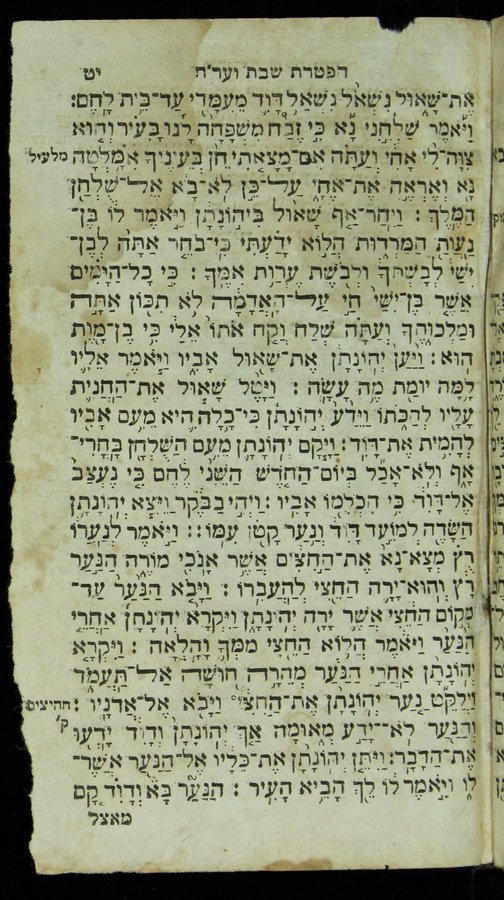 הפטרת שבת וער״ה יט
אֶת־שָׁאוּל נִשְׁאֹל נִשְׁאַל דָּוִד מֵעִמָּדִי עַד־בֵּית לָחֶם׃
וַיֹּאמֶר שַׁלְּחֵנִי נָא כִּי זֶבַח מִשְׁפָּחָה לָנוּ בָּעִיר וְהוּא
צִוָּה־לִי אָחִי וְעַתָּה אִם־מָצָאתִי חֵן בְּעֵינֶיךָ אִמָּלְטָה מלעיל
נָּא וְאֶרְאֶה אֶת־אֶחָי עַל־כֵּן לֹא־בָא אֶל־שֻׁלְחַן
הַמֶּלֶךְ׃ וַיִּחַר־אַף שָׁאוּל בִּיהוֹנָתָן וַיֹּאמֶר לוֹ בֶּן־
נַעֲוַת הַמַּרְדּוּת הֲלוֹא יָדַעְתִּי כִּי־בֹחֵר אַתָּה לְבֶן־
יִשַׁי לְבָשְׁתְּךָ וּלְבֹשֶׁת עֶרְוַת אִמֶּךָ׃ כִּי כָל־הַיָּמִים
אֲשֶׁר בֶּן־יִשַׁי חַי עַל־הָאֲדָמָה לֹא תִכּוֹן אַתָּה
וּמַלְכוּתֶךָ וְעַתָּה שְׁלַח וְקַח אֹתוֹ אֵלַי כִּי בֶן־מָוֶת
הוּא׃ וַיַּעַן יְהוֹנָתָן אֶת־שָׁאוּל אָבִיו וַיֹּאמֶר אֵלָיו
לָמָּה יוּמַת מֶה עָשָׂה׃ וַיָּטֶל שָׁאוּל אֶת־הַחֲנִית
עָלָיו לְהַכֹּתוֹ וַיֵּדַע יְהוֹנָתָן כִּי־כָלָה הִיא מֵעִם אָבִיו
לְהָמִית אֶת־דָּוִד׃ וַיָּקָם יְהוֹנָתָן מֵעִם הַשֻּׁלְחָן בָּחֳרִי־
אָף וְלֹא־אָכַל בְּיוֹם־הַחֹדֶשׁ הַשֵּׁנִי לֶחֶם כִּי נֶעְצַב
אֶל־דָּוִד כִּי הִכְלִמוֹ אָבִיו׃ וַיְהִי בַבֹּקֶר וַיֵּצֵא יְהוֹנָתָן
הַשָּׂדֶה לְמוֹעֵד דָּוִד וְנַעַר קָטֹן עִמּוֹ׃ וַיֹּאמֶר לְנַעֲרוֹ
רֻץ מְצָא־נָא אֶת־הַחִצִּים אֲשֶׁר אָנֹכִי מוֹרֶה הַנַּעַר
רָץ וְהוּא־יָרָה הַחֵצִי לְהַעֲבִרוֹ׃ וַיָּבֹא הַנַּעַר עַד־
מְקוֹם הַחֵצִי אֲשֶׁר יָרָה יְהוֹנָתָן וַיִּקְרָא יְהוֹנָתָן אַחֲרֵי
הַנַּעַר וַיֹּאמֶר הֲלוֹא הַחֵצִי מִמְּךָ וָהָלְאָה׃ וַיִּקְרָא
יְהוֹנָתָן אַחֲרֵי הַנַּעַר מְהֵרָה חוּשָׁה אַל־תַּעֲמֹד
וַיְלַקֵּט נַעַר יְהוֹנָתָן אֶת־הַחֵצִי וַיָּבֹא אֶל־אֲדֹנָיו׃ החיצים
וְהַנַּעַר לֹא־יָדַע מְאוּמָה אַךְ יְהוֹנָתָן וְדָוִד יָדְעוּ ק׳
אֶת־הַדָּבָר׃ וַיִּתֵּן יְהוֹנָתָן אֶת־כֵּלָיו אֶל־הַנַּעַר אֲשֶׁר־
לוֹ וַיֹּאמֶר לוֹ לֵךְ הָבֵיא הָעִיר׃ הַנַּעַר בָּא וְדָוִד קָם
מאצל